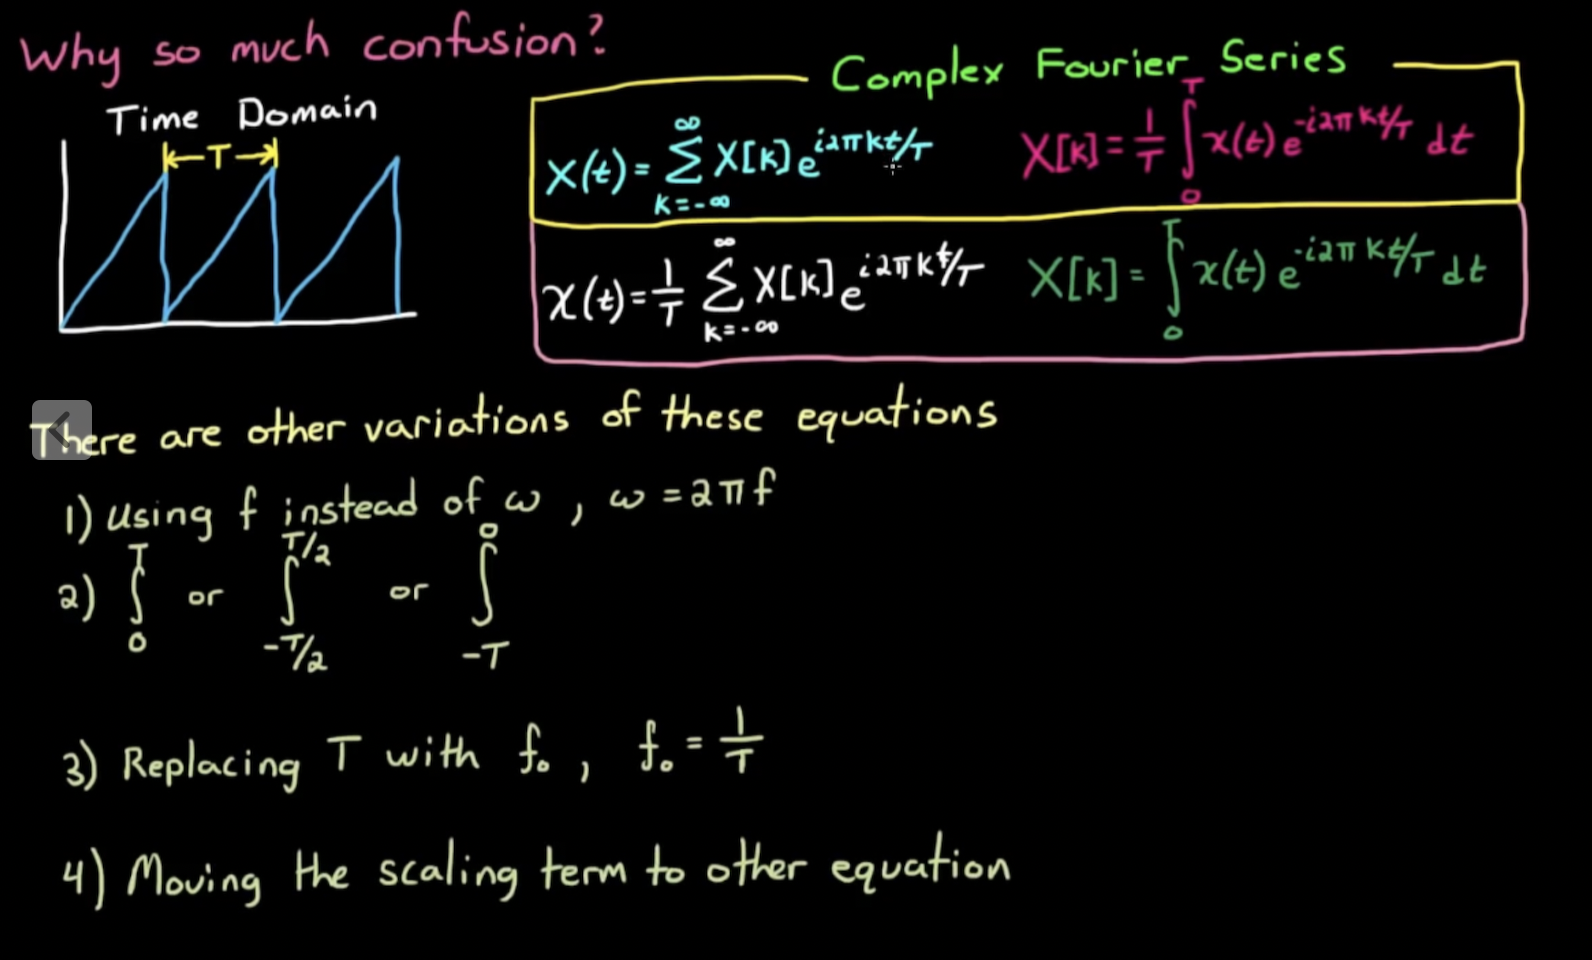 Why so much confusion?
Complex Fourier Series
Time Domain
T
X(t) = ∑_{k=-∞}^{∞} X[k] e^{i2πkt/T}
X[k] = 1/T ∫_0^T x(t) e^{-i2πkt/T} dt
x(t) = 1/T ∑_{k=-∞}^{∞} X[k] e^{i2πkt/T}
X[k] = ∫_0^T x(t) e^{-i2πkt/T} dt
There are other variations of these equations
1) Using f instead of ω , ω = 2πf
2) ∫_0^T or ∫_{-T/2}^{T/2} or ∫_{-T}^0
3) Replacing T with f₀ , f₀ = 1/T
4) Moving the scaling term to other equation